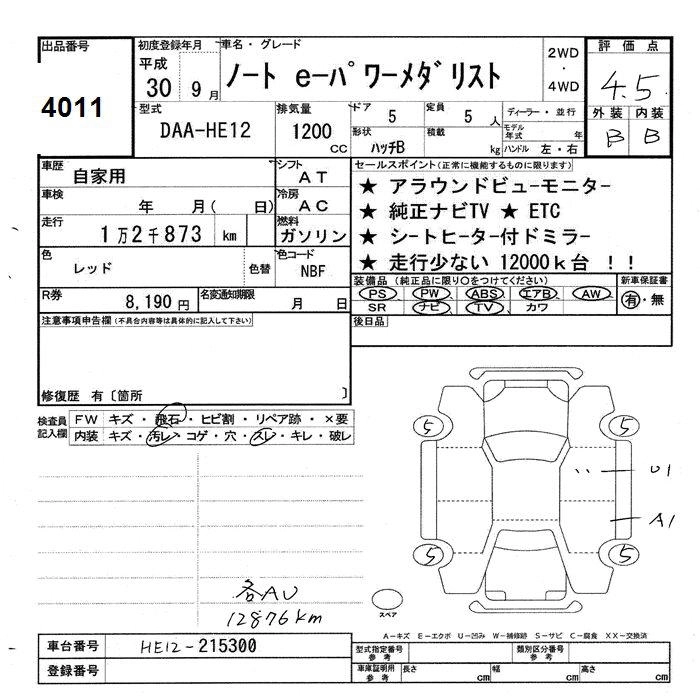 出品番号 4011
初度登録年月 平成 30 9月
車名・グレード ノート e-パワーメダリスト
2WD ・ 4WD
評価点 4.5
外装 B 内装 B
型式 DAA-HE12
排気量 1200 CC
ドア 5 定員 5 人
形状 ハッチB 積載 kg
ディーラー・並行
モデル年式 年
ハンドル 左・右
車歴 自家用
シフト AT
車検 年 月( 日)
冷房 AC
走行 1万2千873 km
燃料 ガソリン
色 レッド 色替
色コード NBF
R券 8,190円
名変通知期限 月 日
セールスポイント(正常に機能するものに限ります)
★ アラウンドビューモニター
★ 純正ナビTV ★ ETC
★ シートヒーター付ドミラー
★ 走行少ない 12000k台 !!
装備品 (純正品に限り○をつけてください)
PS PW ABS エアB AW
SR ナビ TV カワ
新車保証書 有・無
後日品
注意事項申告欄(不具合内容等は具体的に記入して下さい)
修復歴 有〔箇所 〕
検査員記入欄
FW キズ・飛石・ヒビ割・リペア跡・×要
内装 キズ・汚レ・コゲ・穴・スレ・キレ・破レ
5 5
U1
A1
5 5
各AU
12876km
スペア
A-キズ E-エクボ U-凹み W-補修跡 S-サビ C-腐食 XX-交換済
車台番号 HE12-215300
登録番号
型式指定番号 参考
類別区分番号 参考
車庫証明用 参考 長さ cm 幅 cm 高さ cm